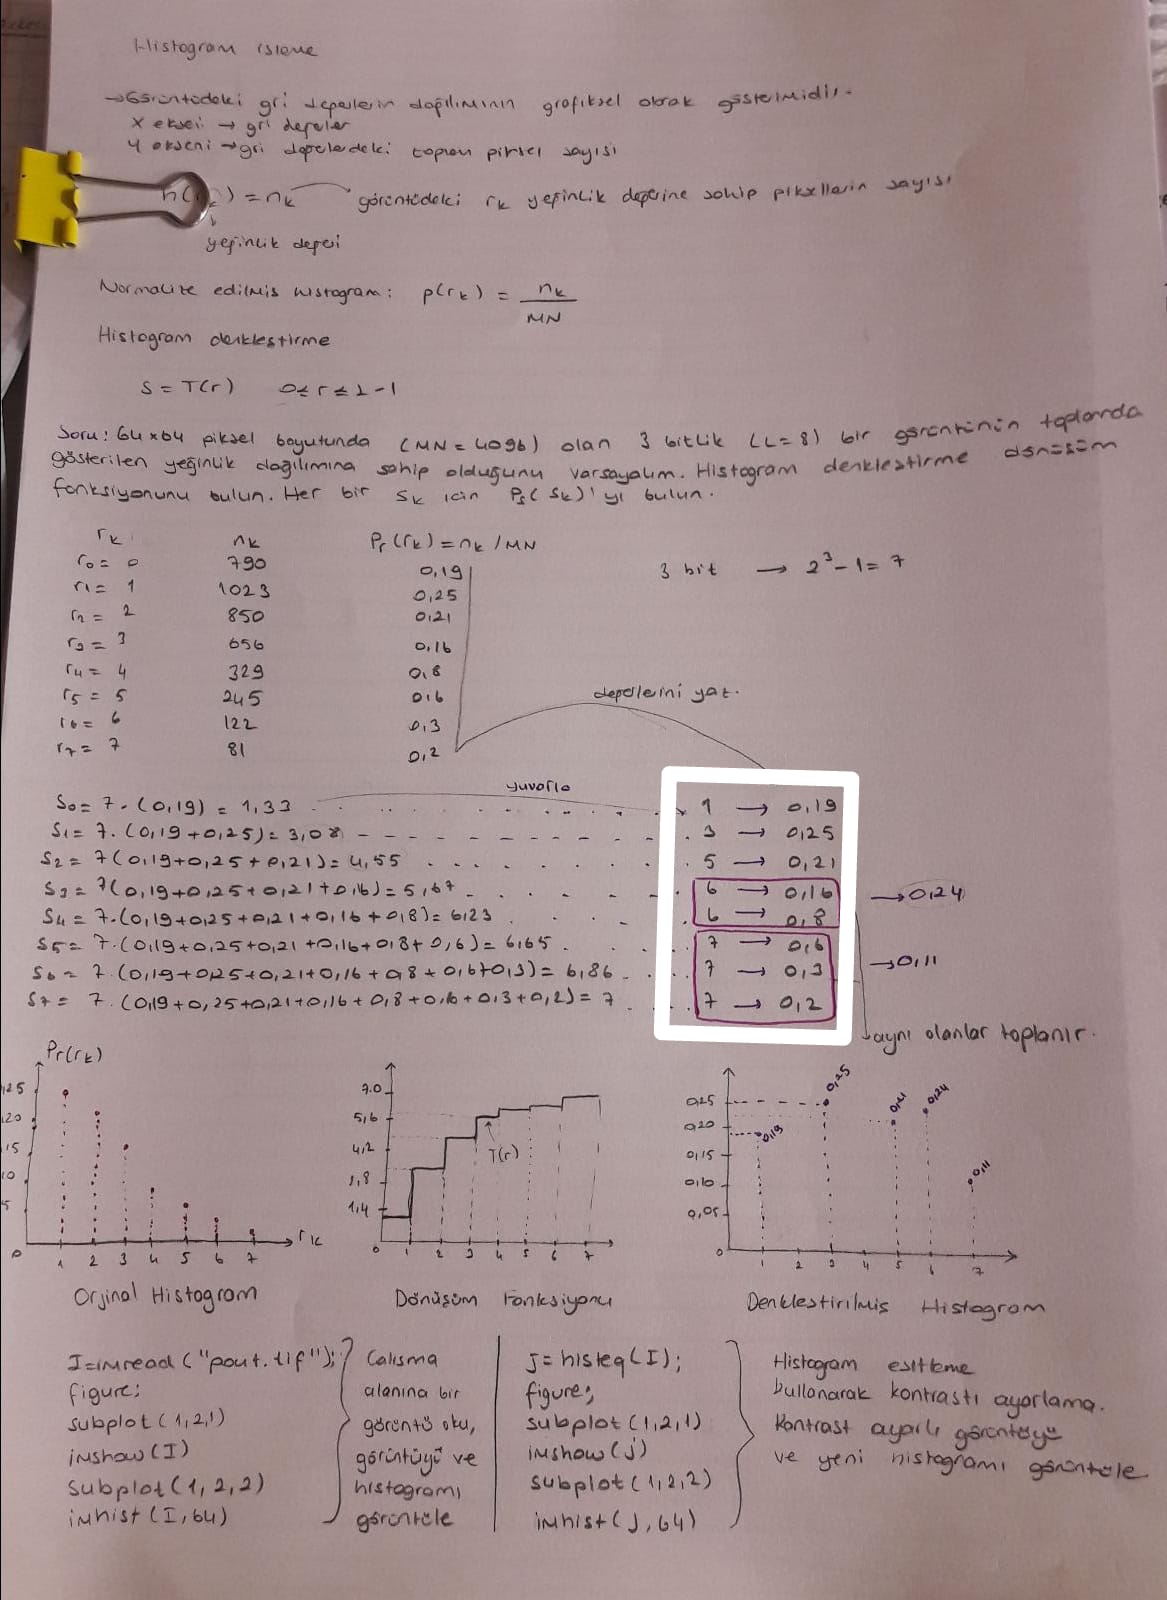 Histogram isleme
→ Görüntüdeki gri değerlerin dağılımının grafiksel olarak gösterimidir.
x ekseni → gri değerler
y ekseni → gri değerlerdeki toplam piksel sayısı
h(rk) = nk → görüntüdeki rk yeğinlik değerine sahip piksellerin sayısı
yeğinlik değeri
Normalize edilmis histogram: p(rk) = nk / MN
Histogram denklestirme
S = T(r) 0 ≤ r ≤ L-1
Soru: 64x64 piksel boyutunda (MN = 4096) olan 3 bitlik (L = 8) bir görüntünün toplamda
gösterilen yeğinlik dağılımına sahip olduğunu varsayalım. Histogram denklestirme dönüşüm
fonksiyonunu bulun. Her bir Sk icin Ps(Sk)'yı bulun.
rk nk Pr(rk) = nk/MN
r0 = 0 790 0,19
3 bit → 2³-1 = 7
r1 = 1 1023 0,25
r2 = 2 850 0,21
r3 = 3 656 0,16
r4 = 4 329 0,8
r5 = 5 245 0,6
r6 = 6 122 0,3
r7 = 7 81 0,2
değerlerini yaz.
yuvarla
S0 = 7.(0,19) = 1,33 1 → 0,19
S1 = 7.(0,19+0,25) = 3,08 3 → 0,25
S2 = 7(0,19+0,25+0,21) = 4,55 5 → 0,21
S3 = 7(0,19+0,25+0,21+0,16) = 5,67 6 → 0,16 → 0,24
S4 = 7.(0,19+0,25+0,21+0,16+0,8) = 6,23 6 → 0,8
S5 = 7.(0,19+0,25+0,21+0,16+0,8+0,6) = 6,65 7 → 0,6
S6 = 7.(0,19+0,25+0,21+0,16+0,8+0,6+0,3) = 6,86 7 → 0,3 → 0,11
S7 = 7.(0,19+0,25+0,21+0,16+0,8+0,6+0,3+0,2) = 7 7 → 0,2
aynı olanlar toplanır.
Pr(rk)
25
20
15
10
5
0 1 2 3 4 5 6 7 rk
Orjinal Histogram
7.0
5,6
4,2
1,4
T(r)
0 1 2 3 4 5 6 7
Dönüşüm Fonksiyonu
0,25
0,20
0,15
0,10
0,05
0,19 0,25 0,21 0,24 0,11
0 1 2 3 4 5 6 7
Denklestirilmis Histogram
I=imread("pout.tif");
figure;
subplot(1,2,1)
imshow(I)
subplot(1,2,2)
imhist(I,64)
Calısma
alanına bir
görüntü oku,
görüntüyü ve
histogramı
görüntüle
j=histeq(I);
figure;
subplot(1,2,1)
imshow(j)
subplot(1,2,2)
imhist(j,64)
Histogram esitleme
kullanarak kontrastı ayarlama.
Kontrast ayarlı görüntüyü
ve yeni histogramı görüntüle